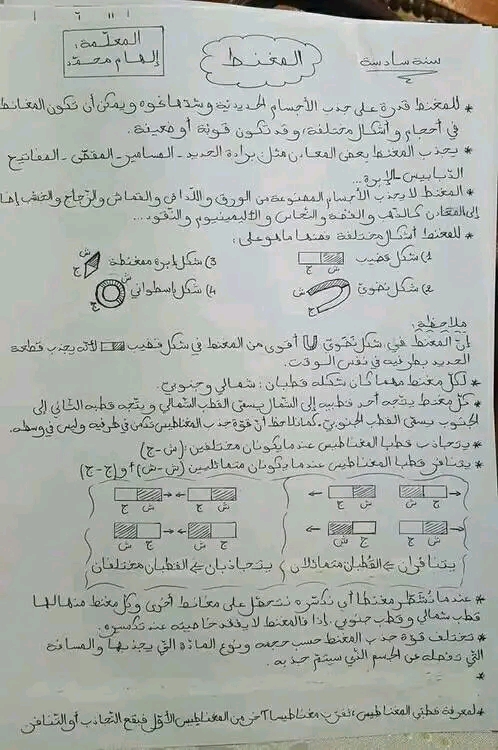 سنة سادسة
المغنط
المعلّمة:
إلهام محمد
* للمغنط قدرة على جذب الأجسام الحديدية وشدّها نحوه ويمكن أن تكون المغانط
في أحجام وأشكال مختلفة، وقد تكون قويّة أو ضعيفة.
* يجذب المغنط بعض المعادن مثل برادة الحديد - المسامير - المقصّ - المفاتيح
الدبابيس - الإبرة...
* المغنط لا يجذب الأجسام المصنوعة من الورق والقماش والزّجاج والخشب
إلى المعادن كالذّهب والفضّة والنّحاس والألمينيوم والنّقود...
* للمغنط أشكال مختلفة فمنها ما هو على:
1) شكل قضيب
ج
ش
3) شكل إبرة ممغنطة
ش
ج
2) شكل نضويّ
ش
ج
4) شكل أسطواني
ش
ج
ملاحظة:
إنّ المغنط في شكل نضويّ أقوى من المغنط في شكل قضيب لأنّه يجذب قطعة
الحديد بطرفيه في نفس الوقت.
* لكلّ مغنط مهما كان شكله قطبان: شمالي وجنوبي.
* كلّ مغنط يتّجه أحد قطبيه إلى الشّمال يسمّى القطب الشّمالي و يتّجه قطبه الثّاني إلى
الجنوب يسمّى القطب الجنوبي. كما نلاحظ أنّ قوّة جذب المغناطيس تكمن في طرفيه وليس في وسطه.
* يتجاذب قطبا المغناطيس عندما يكونان مختلفين: (ش - ج)
* يتنافر قطبا المغناطيس عندما يكونان متماثلين (ش - ش) أو (ج - ج)
ج ش ش ج
ش ج ج ش
يتنافران ⇐ القطبان متماثلان
ج ش ج ش
ش ج ش ج
يتجاذبان ⇐ القطبان مختلفان
* عندما نشطر مغنطا أي نكسّره نتحصّل على مغانط أخرى وكلّ مغنط منها لها
قطب شمالي و قطب جنوبي. إذا فالمغنط لا يفقد خاصيته عند تكسيره.
* تختلف قوّة جذب المغنط حسب حجمه ونوع المادّة التي يجذبها والمسافة
التي تفصله عن الجسم الذي سيتمّ جذبه.
*
لمعرفة قطبي المغناطيس، نقرّب مغناطيسا آخر من المغناطيس الأوّل فيقع التّجاذب أو التّنافر